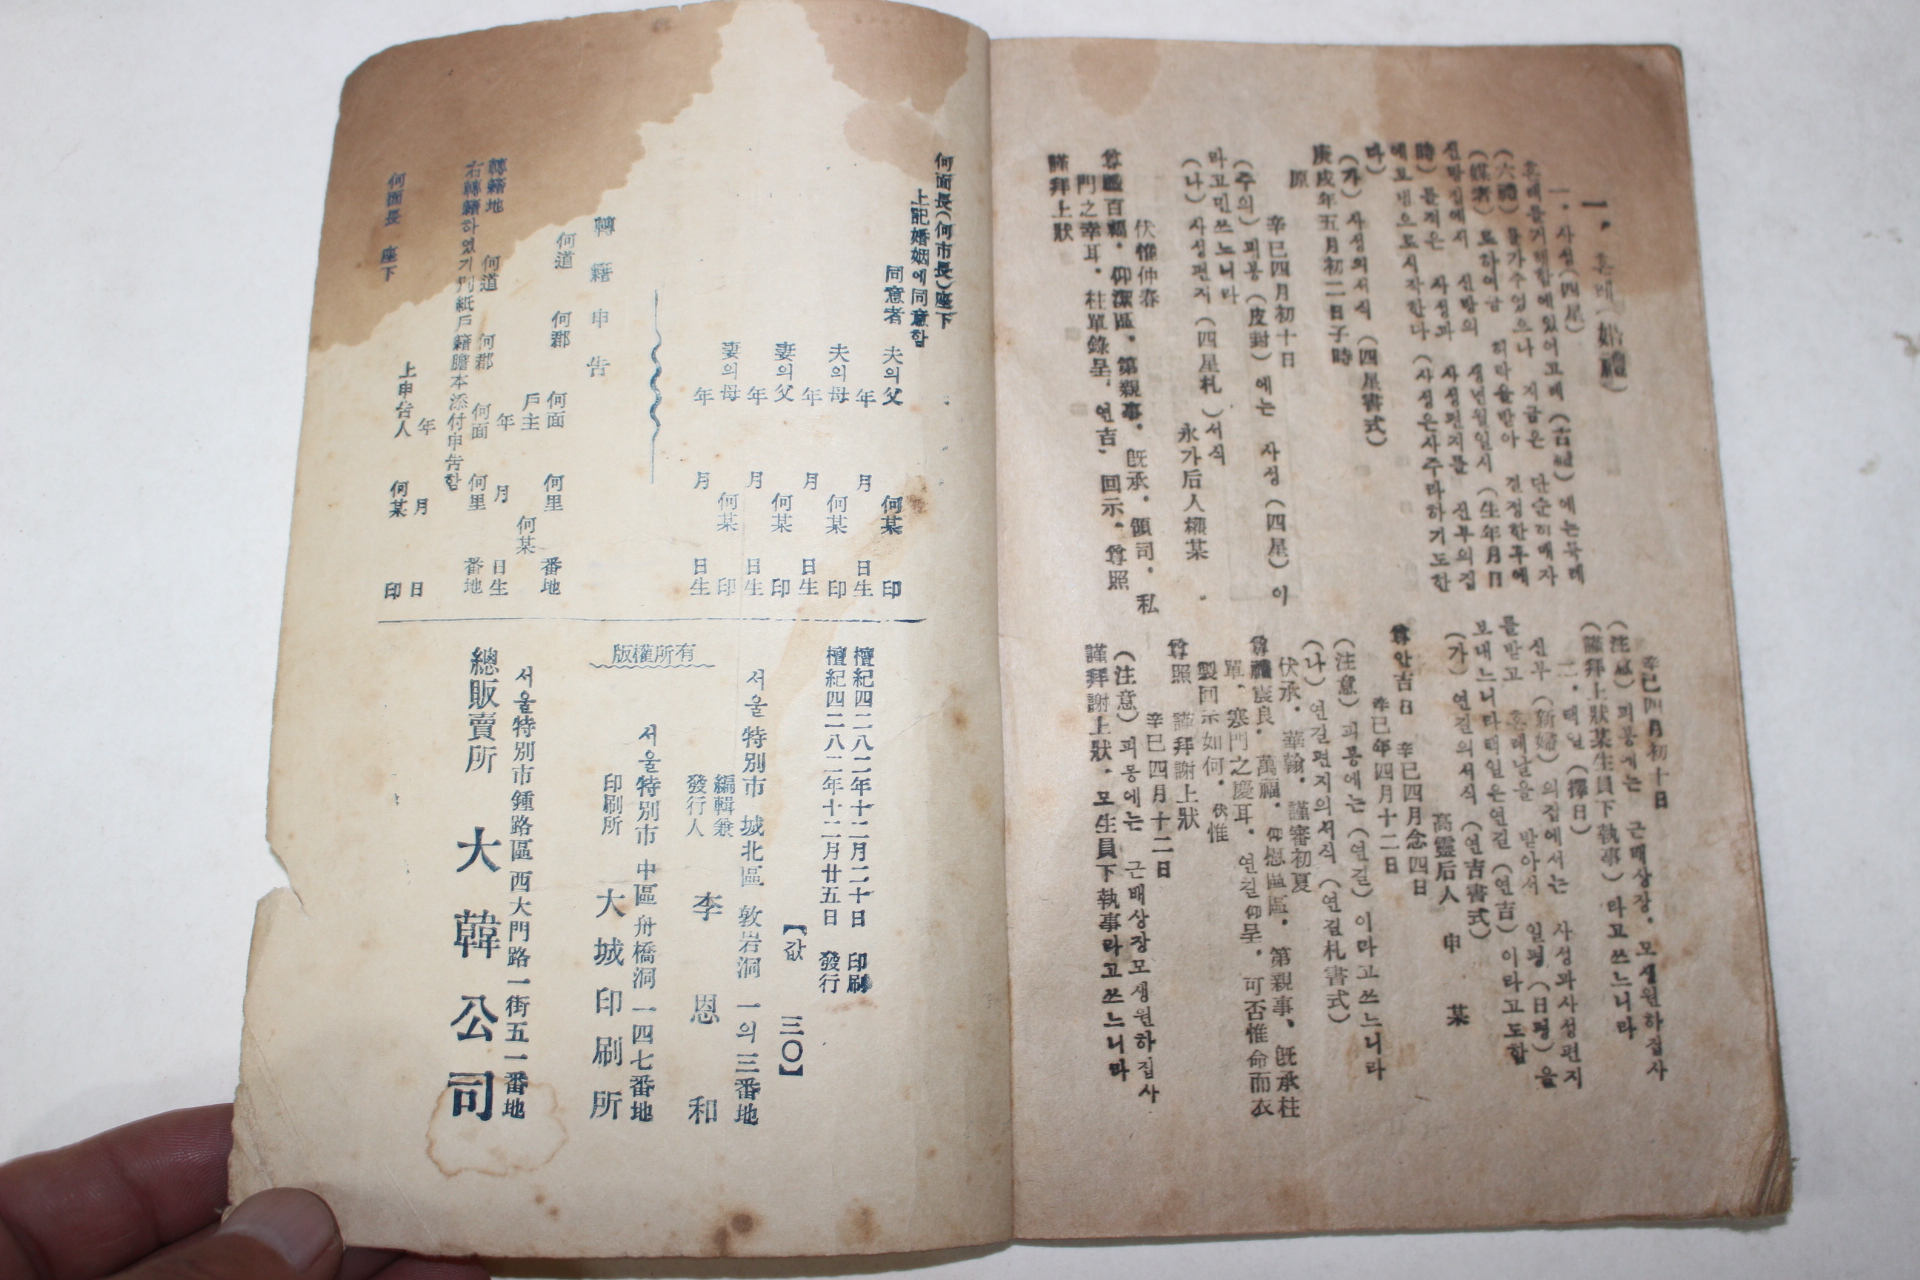 一. 혼례(婚禮)
一. 사성(四星)
혼례를거행함에있어고례(古禮)에는륙례
(六禮)를가추었으나 지금은 단순히매자
(媒者)로하여금 허락을받아 결정한후에
신랑집에서 신랑의 생년월일시(生年月日
時)를적은 사성과 사성편지를 신부의집
에보냄으로시작한다(사성은사주라하기도한
다)
(가) 사성의서식(四星書式)
庚戌年五月初二日子時
原
辛巳四月初十日
(주의) 피봉(皮封)에는 사성(四星)이
라고만쓰느니라
(나) 사성편지(四星札)서식
永가后人柳某
伏惟仲春
尊體百福. 仰溸區區. 第親事. 旣承. 頷司. 私
門之幸耳. 柱單錄呈. 연吉. 回示. 尊照
謹拜上狀
辛巳四月初十日
(注意)피봉에는 근배상장. 모생원하집사
(謹拜上狀某生員下執事)라고쓰느니라
二. 택일(擇日)
신부(新婦)의집에서는 사성과사성편지
를받고 혼례날을 받아서 일평(日평)을
보내느니라택일은연길(연吉)이라고도함
(가) 연길의서식(연吉書式)
高靈后人 申 某
尊안吉日 辛巳四月念四日
辛巳年四月十二日
(注意)피봉에는(연길)이라고쓰느니라
(나) 연길편지의서식(연길札書式)
伏承. 華翰. 謹審初夏
尊體衮良. 萬福. 仰慰區區. 第親事、旣承柱
單. 寒門之慶耳. 연길仰呈. 可否惟命而衣
製回示如何. 伏惟
尊照 謹拜謝上狀
辛巳四月十二日
(注意)피봉에는 근배상장모생원하집사
謹拜謝上狀. 모生員下執事라고쓰느니라
何面長(何市長)座下
上記婚姻에同意함
同意者 夫의父 何某 印
年 月 日生
夫의母 何某 印
年 月 日生
妻의父 何某 印
年 月 日生
妻의母 何某 印
年 月 日生
轉籍申告
何道 何郡 何面 何里 番地
戶主 何某
年 月 日生
轉籍地 何道 何郡 何面 何里 番地
右轉籍하였기別紙戶籍謄本添付申告함
年 月 日
上申告人 何某 印
何面長 座下
檀紀四二八二年十二月二十日 印刷
檀紀四二八二年十二月廿五日 發行
【값 三〇】
서울特別市 城北區 敦岩洞 一의三番地
編輯兼
發行人 李恩和
서울特別市 中區 舟橋洞 一四七番地
印刷所 大城印刷所
版權所有
서울特別市鍾路區西大門路一街五一番地
總販賣所 大韓公司